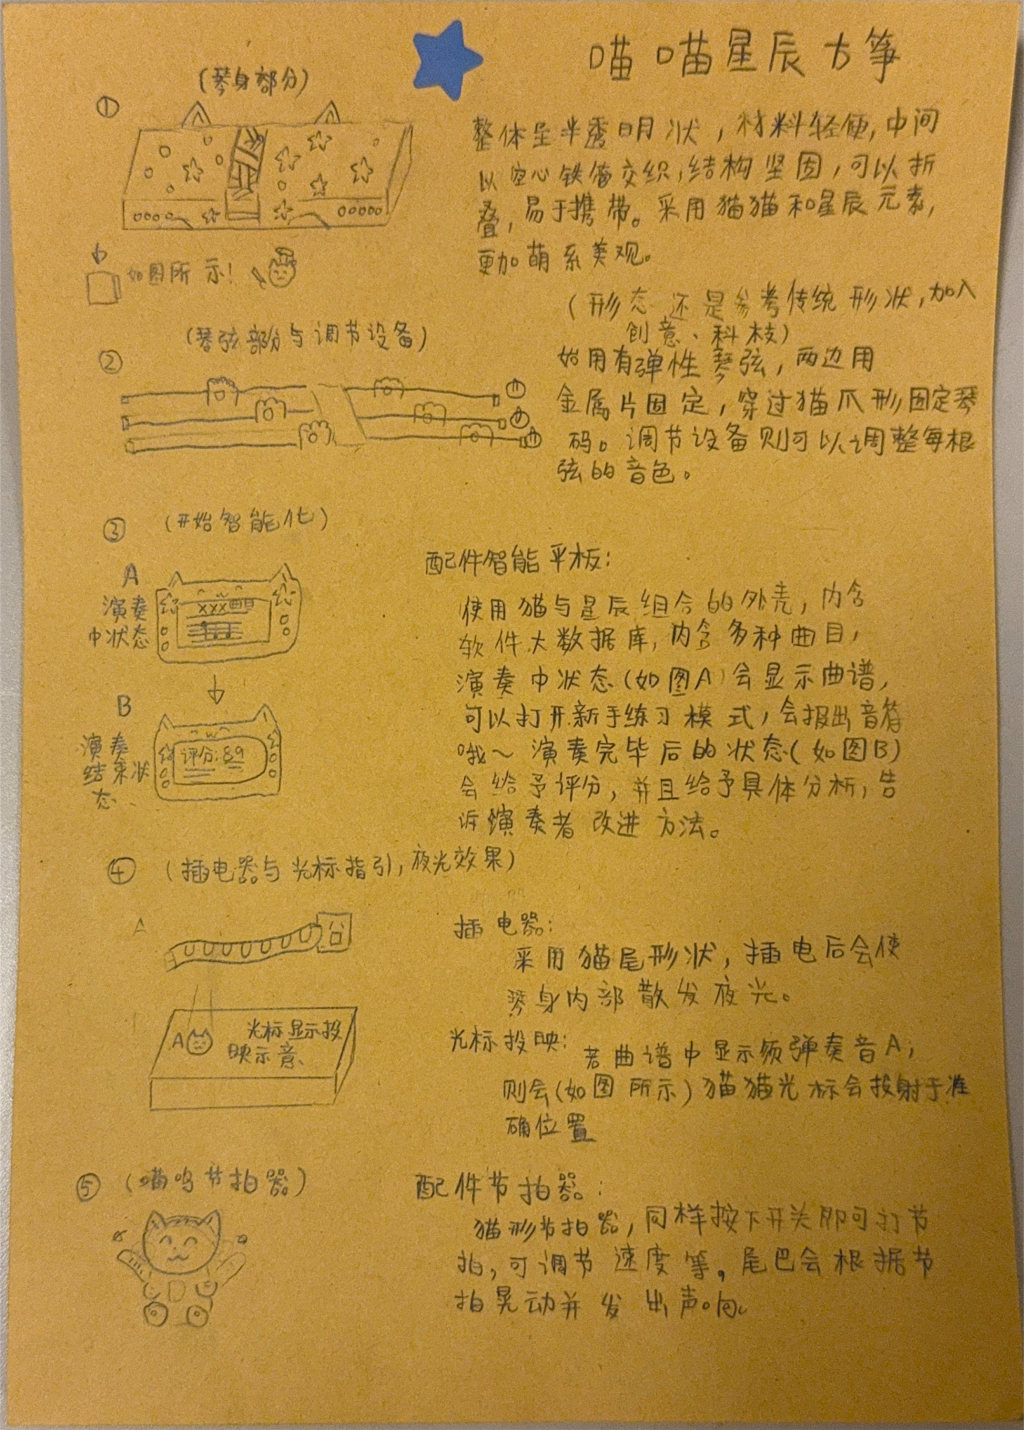 喵喵星辰古筝
(琴身部分)
①
整体呈半透明状，材料轻便，中间
以空心铁管交织，结构坚固，可以折
叠，易于携带。采用猫猫和星辰元素，
更加萌系美观。
如图所示！
(形态还是参考传统形状，加入
创意、科技)
(琴弦部分与调节设备)
②
始用有弹性琴弦，两边用
金属片固定，穿过猫爪形固定琴
码。调节设备则可以调整每根
弦的音色。
③ (开始智能化)
配件智能平板：
A
演奏
中状态
XXX曲
使用猫与星辰组合的外壳，内含
软件大数据库，内含多种曲目，
演奏中状态(如图A)会显示曲谱，
可以打开新手练习模式，会报出音符
哦～演奏完毕后的状态(如图B)
会给予评分，并且给予具体分析，告
诉演奏者改进方法。
B
演奏
结束状
态
评分:89
④ (插电器与光标指引，夜光效果)
A
插电器：
采用猫尾形状，插电后会使
琴身内部散发夜光。
A 光标显示投
映示意、
光标投映：若曲谱中显示须弹奏音A，
则会(如图所示)猫猫光标会投射于准
确位置
⑤ (喵呜节拍器)
配件节拍器：
猫形节拍器，同样按下开关即可打节
拍，可调节速度等。尾巴会根据节
拍晃动并发出声响。